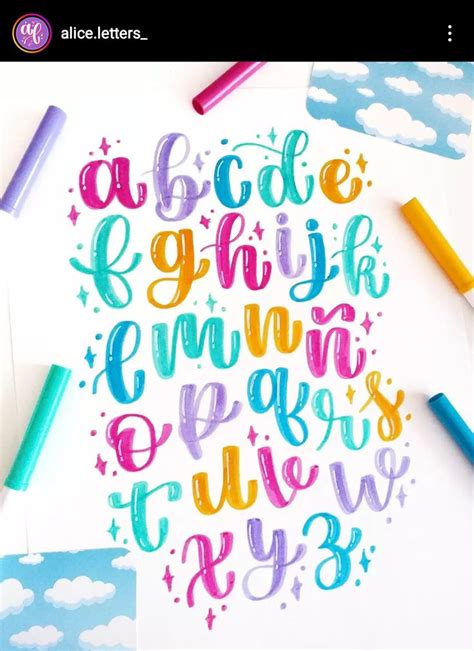 alice.letters_
a b c d e
f g h i j k
l m n ñ
o p q r s
t u v w
x y z